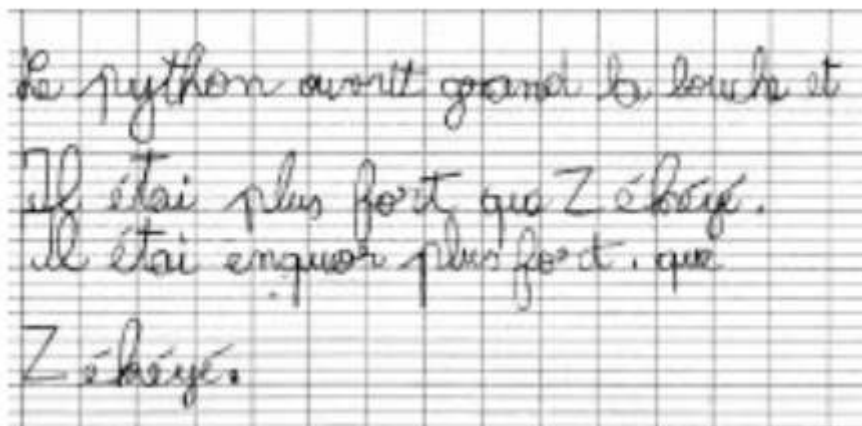 Le python ouvrit grand la bouche et
Il étai plus fort que Zékéyé.
il étai enquor plus fort. que
Zékéyé.